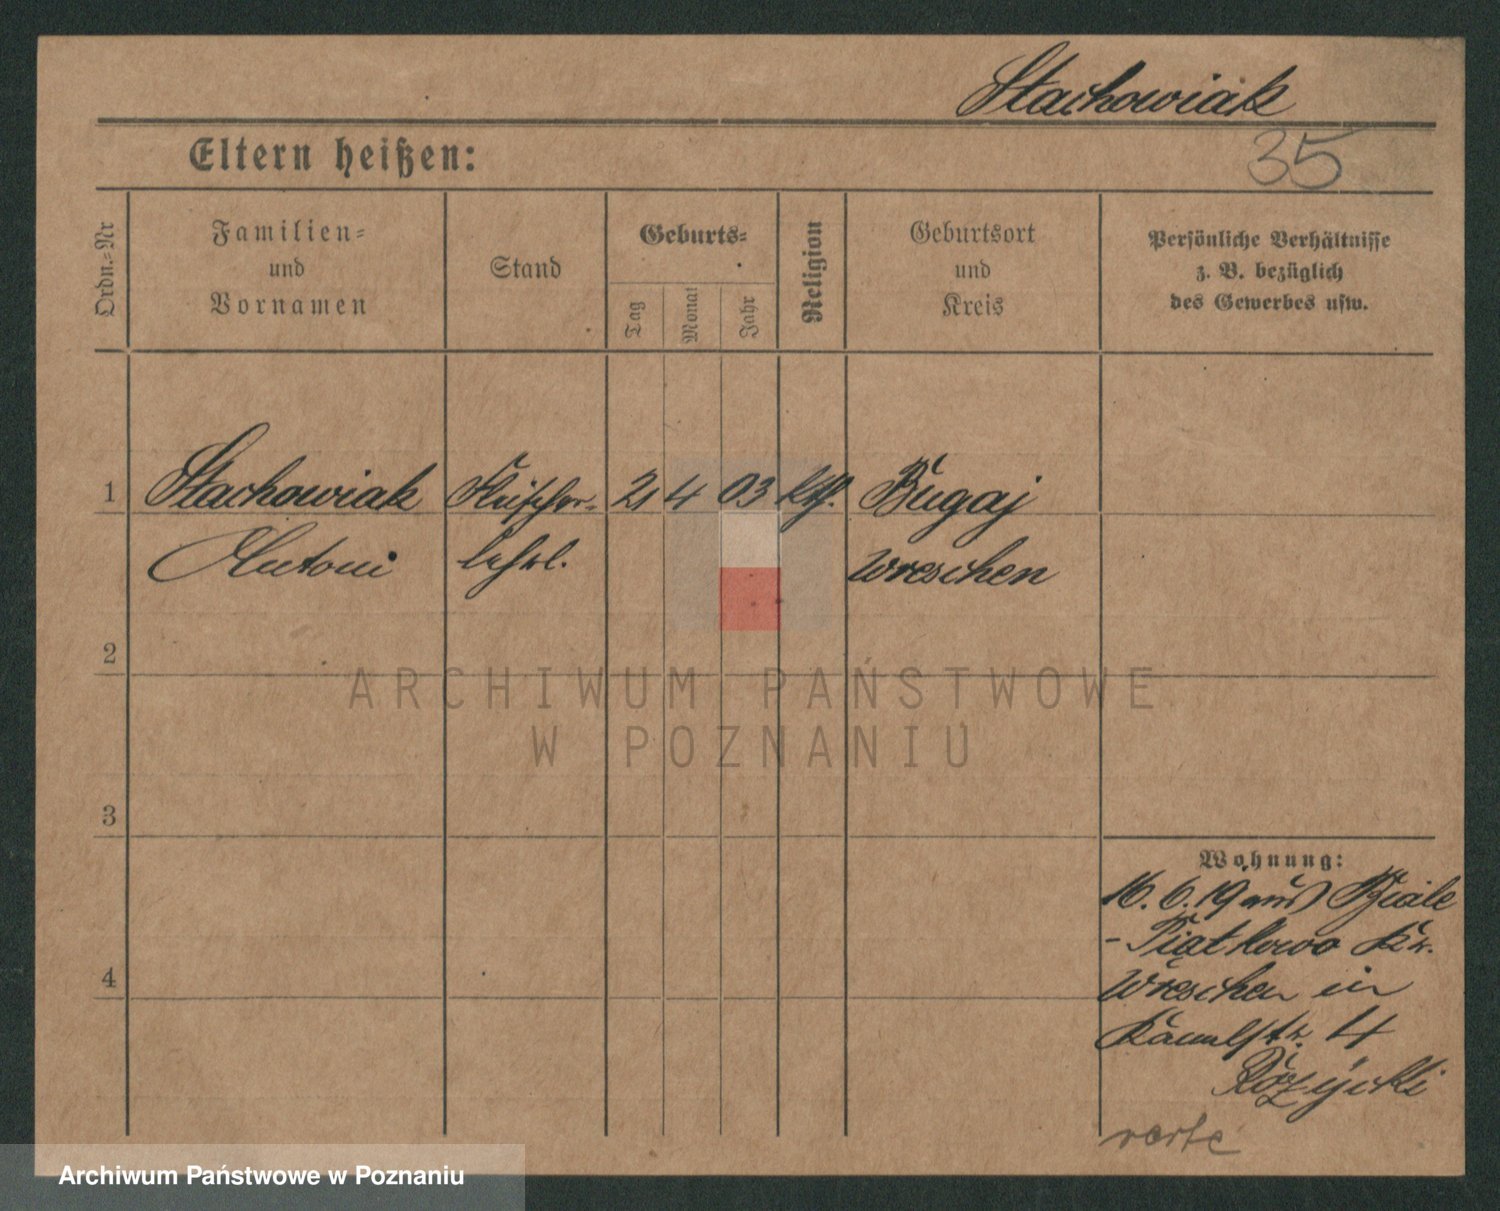 Stachowiak
Eltern heißen:
35
Ordn.-Nr
Familien-
und
Vornamen
Stand
Geburts-
Tag
Monat
Jahr
Religion
Geburtsort
und
Kreis
Persönliche Verhältnisse
z. B. bezüglich
des Gewerbes usw.
1 Stachowiak Fleischer- 21 4 03 kth. Bugaj
Antoni lehrl. Wreschen
2
ARCHIWUM PAŃSTWOWE
W POZNANIU
3
Wohnung:
16. 6. 19 aus Biale
- Piątkowo Kr.
4
Wreschen in
Kanalstr. 4
Różycki
verte
Archiwum Państwowe w Poznaniu